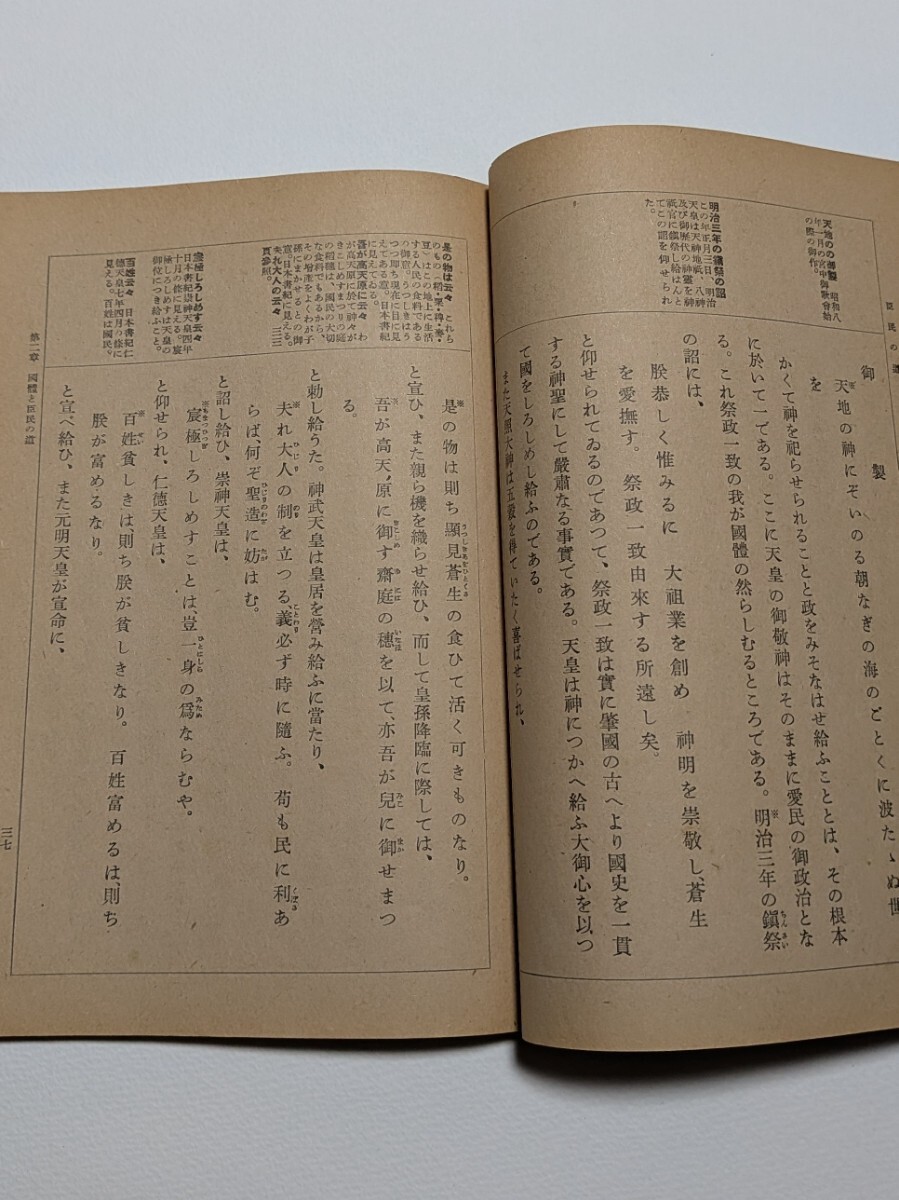 臣民の道
天地の御製 昭和八
年一月の宮中御歌會始
の際の御作。
明治三年の鎭祭の詔
この年正月三日、明治
天皇は天神地祇、八神
及び御歴代の神靈を神
祇官に鎭祭し給はんと
てこの詔を仰せられ
た。
御製
天地の神にぞいのる朝なぎの海のごとくに波たゝぬ世
を
かくて神を祀らせられることと政をみそなはせ給ふこととは、その根本
に於いて一である。ここに天皇の御敬神はそのままに愛民の御政治とな
る。これ祭政一致の我が國體の然らしむるところである。※明治三年の鎭祭
の詔には、
朕恭しく惟みるに 大祖業を創め 神明を崇敬し、蒼生
を愛撫す。祭政一致由來する所遠し矣。
と仰せられてゐるのであつて、祭政一致は實に肇國の古へより國史を一貫
する神聖にして嚴肅なる事實である。天皇は神につかへ給ふ大御心を以つ
て國をしろしめし給ふのである。
また天照大神は五穀を得ていたく喜ばせられ、
是の物は云々 これら
のもの(稻・粟・稗・麥・
豆)はこの地上に生活
する人民の食料である
の御意。うつしきはう
つつ即ち現在に目に見
えてある意。日本書紀
に見えてゐる。
吾が高天原に云々 わ
が高天原に於て神々が
きこしめすまつりの庭
の稻穗は、國民の大切
な食料でもあるから、
その增產をよくわが子
孫にまかせるとの御
意。日本書紀に見える。
夫れ大人の云々 三三
頁參照。
宸極しろしめす云々
日本書紀崇神天皇四年
十月の條に見える。宸
極しろしめすは天皇の
御位につき給ふこと。
百姓云々 日本書紀仁
德天皇七年四月の條に
見える。百姓は國民。
※是の物は則ち顯見蒼生の食ひて活く可きものなり。
と宣ひ、また親ら機を織らせ給ひ、而して皇孫降臨に際しては、
吾が高天ノ原に御す齋庭の穗を以て、亦吾が兒に御せまつ
る。
と勅し給うた。神武天皇は皇居を營み給ふに當たり、
※夫れ大人の制を立つる、義必ず時に隨ふ。苟も民に利あ
らば、何ぞ聖造に妨はむ。
と詔し給ひ、崇神天皇は、
※宸極しろしめすことは、豈一身の爲ならむや。
と仰せられ、仁德天皇は、
※百姓貧しきは則ち朕が貧しきなり。百姓富めるは、則ち
朕が富めるなり。
と宣べ給ひ、また元明天皇が宣命に、
第二章 國體と臣民の道
三七